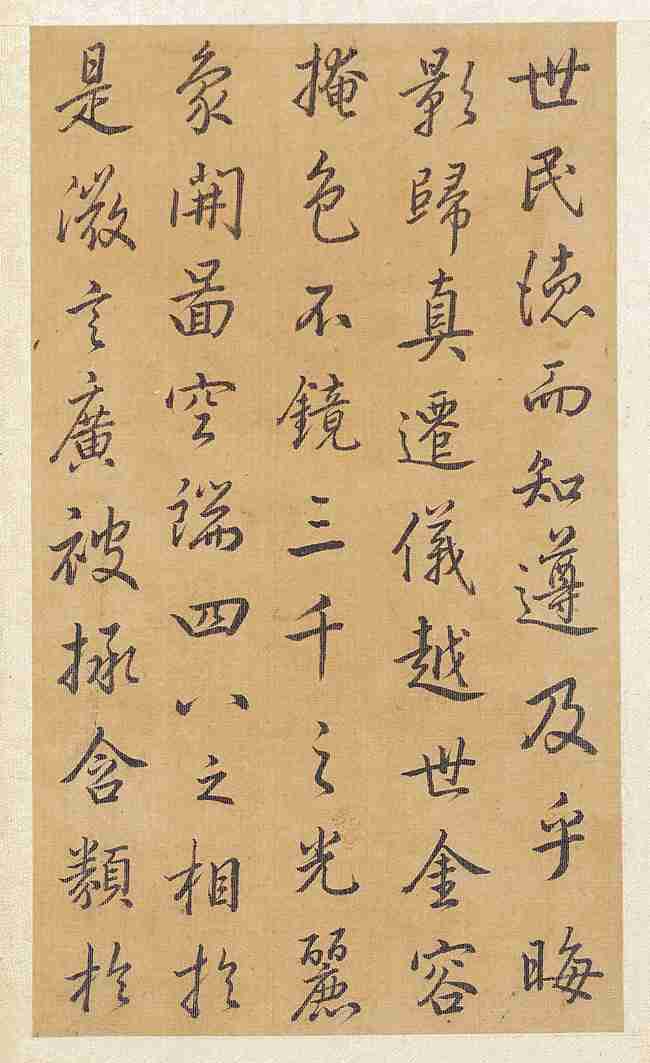 世民德而知遵及乎晦
影歸真遷儀越世金容
掩色不鏡三千之光麗
象開啚空端四八之相扵
是微言廣被拯含類扵